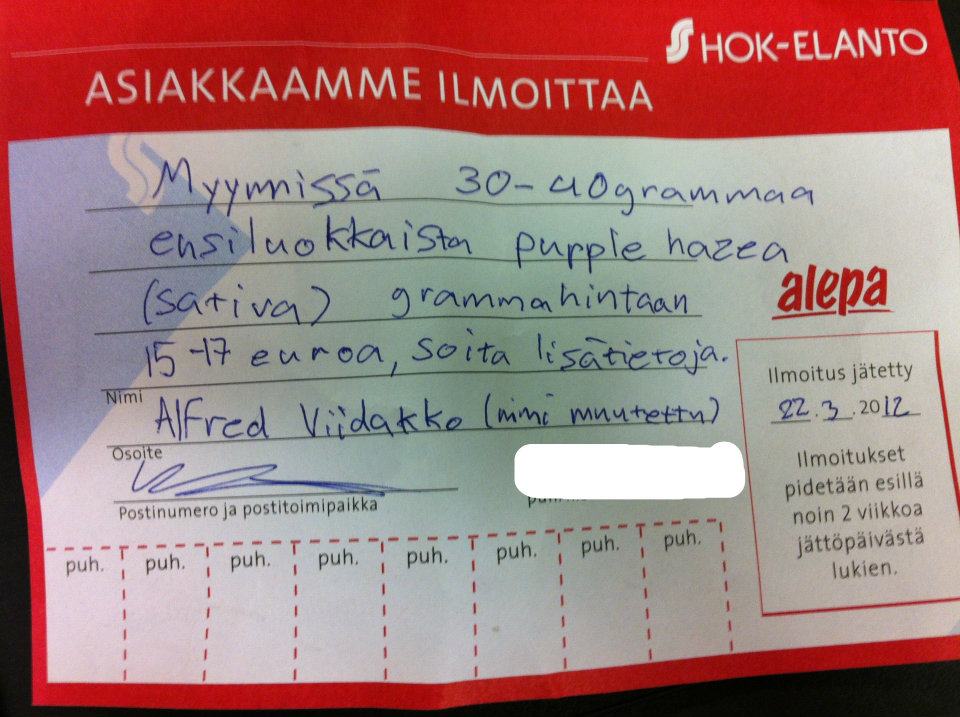 HOK-ELANTO
ASIAKKAAMME ILMOITTAA
Myynnissä 30-40grammaa
ensiluokkaista purple hazea
(sativa) grammahintaan
15-17 euroa, soita lisätietoja.
Nimi
Alfred Viidakko (nimi muutettu)
Osoite
Postinumero ja postitoimipaikka
alepa
Ilmoitus jätetty
22.3.2012
Ilmoitukset
pidetään esillä
noin 2 viikkoa
jättöpäivästä
lukien.
puh. puh. puh. puh. puh. puh. puh. puh.